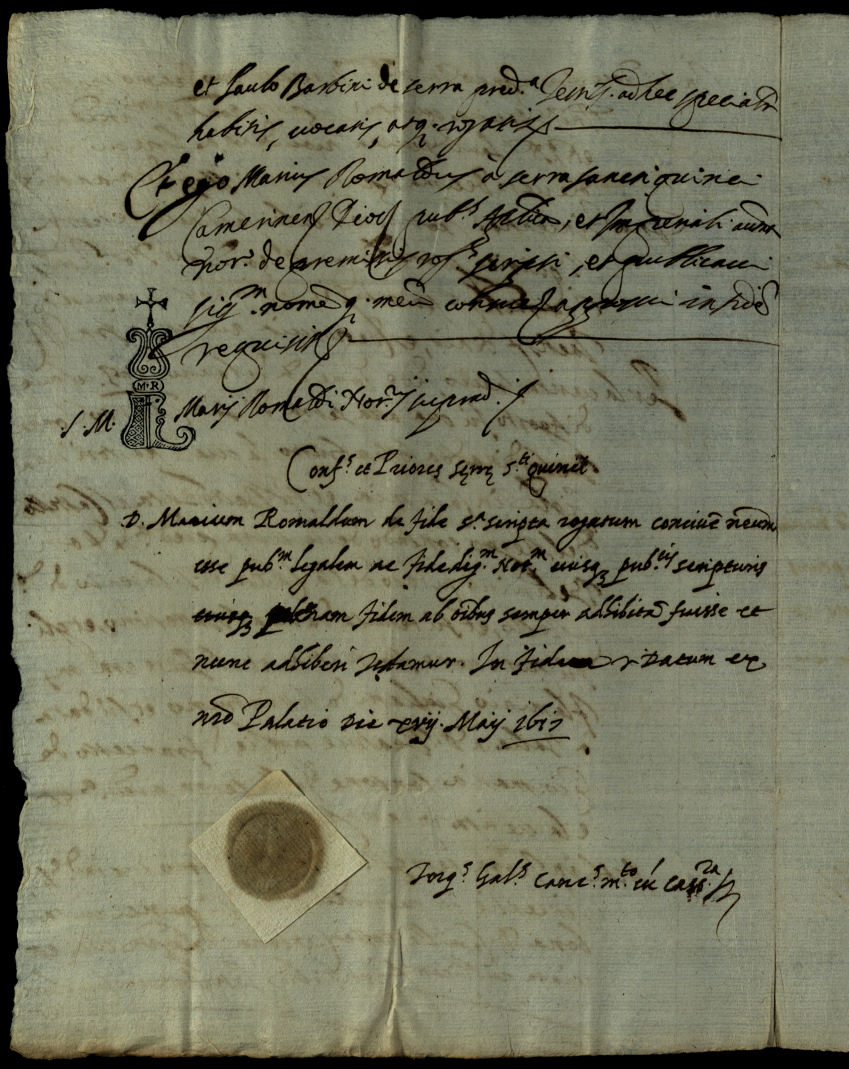 et Paulo Barbini de serra pred.a Testib. ad hec specialr
habitis, vocatis, atq. rogatis
Et ego Marius Romaldus à serra sancti quirici
Camerinen Dioc pub.s Aplica, et Imperiali aucte
Not.s de premissis rog.s scripsi, et publicavi
sig.m nome q. meū consuet apposui in fidē
requisitus
M R
S. M. Marij Romaldi Not.rij suprad.
Conf.s et Priores Serre S.ti quirici
D. Marium Romaldum de fide s.a scripta rogatum concivē nrum
esse pub.m legalem ac fidedig.m Not.m eiusq pub.cis scripturis
fidem ab oībus semper adhibitā fuisse et
nunc adhiberi testamur. In fidem Datum ex
nrō Palatio Die xvij. Maij 1617
Canc.s